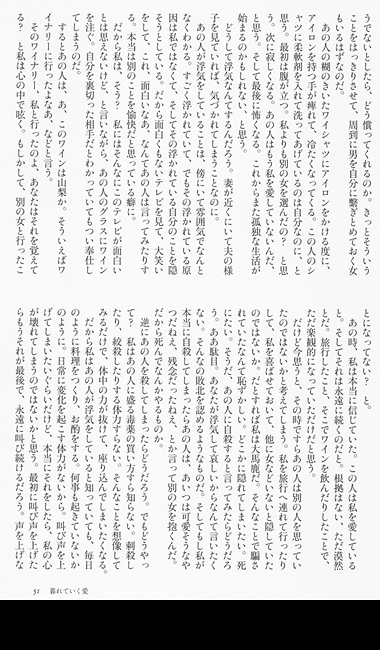 うでないとしたら、どう償ってくれるのか。きっとそういう
ことをはっきりさせて、周到に男を自分に繋ぎとめておく女
もいるはずなのだ。
あの人の糊のきいたワイシャツにアイロンをかける度に、
アイロンを持つ手が痺れて、冷たくなってくる。この人のシ
ャツに柔軟剤を入れて洗ってあげているのは自分なのに、と
思う。最初は腹が立つ。私よりも別の女を選んだの？　と思
う。次に寂しくなる。あの人はもう私を愛していないんだ、
と思う。そして最後に怖くなる。これからまた孤独な生活が
始まるのかもしれない、と思う。
どうして浮気なんてするんだろう。妻が近くにいて夫の様
子を見ていれば、気づかれてしまうことなのに。
あの人が浮気をしていることは、傍にいて雰囲気でなんと
なくわかる。すごく浮かれていて、でもその浮かれている原
因は私ではなくて、そしてその浮かれている自分のことを隠
そうとしている。だから面白くもないテレビを見て、大笑い
をして、これ、面白いなあ、なんてあの人は言ってみたりす
る。本当は別のことを愉快だと思っている癖に。
だから私は、そう？　私にはそんなにこのテレビが面白い
とは思えないけど、と言いながら、あの人のグラスにワイン
を注ぐ。自分を裏切った相手だとわかっていてもつい奉仕し
てしまうのだ。
するとあの人は、あ、このワインは山梨か。そういえばワ
イナリーに行ったよなあ、などと言う。
そのワイナリー、私と行ったのよ、あなたはそれを覚えて
る？　と私は心の中で呟く。もしかして、別の女と行ったこ
とになってない？　と。
あの時、私は本当に信じていた。この人は私を愛している
と。そしてそれは永遠に続くのだと。根拠はない、ただ漠然
とだ。旅行したこと、そこでワインを飲んだりしたことで、
ただ楽観的になっていただけだと思う。
だけど今思うと、その時ですらあの人は別の人を思ってい
たのではないかと考えてしまう。私を旅行へ連れて行ったり
して、私を喜ばせておいて、他に女などいないと隠していた
のではないか。だとすれば私は大馬鹿だ。そんなことで騙さ
れていたなんて恥ずかしい。どこかに隠れてしまいたい。死
にたい。そうだ、あの人に自殺すると言ってみたらどうだろ
う。ああ駄目。あなたが浮気して哀しいからなんて言いたく
ない。そんなの敗北を認めるようなものだ。そしてもし私が
本当に自殺してしまったらあの人は、あいつは可愛そうなや
つだねえ、残念だったねえ、とか言って別の女を抱くんだ。
だから死んでなんかやるものか。
逆にあの人を殺してしまったらどうだろう。でもどうやっ
て？　私はあの人に盛る毒薬の買い方すら知らない。刺殺し
たり、絞殺したりする体力すらない。そんなことを想像して
みるだけで、体中の力が抜けて、座り込んでしまいたくなる。
だから私はあの人が浮気をしていると知っていても、毎日
のように料理をつくり、お酌をする。何事も起きていないか
のように。日常に変化を起こす体力がないから。叫び声を上
げてしまいたいぐらいだけど、本当にそれをしたら、私の心
が壊れてしまうのではないかと思う。最初に叫び声を上げた
らもうそれが最後で、永遠に叫び続けるだろう。声を上げな
51　暮れていく愛